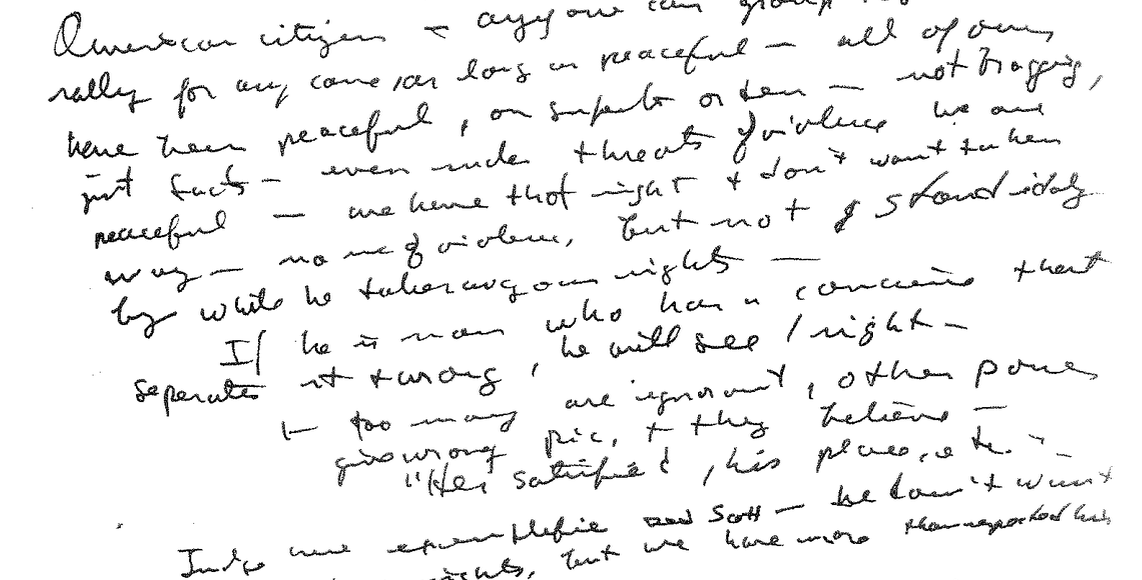 American citizen – anyone can group
rally for any cause, as long as peaceful – all of ours
have been peaceful, or – not bragging,
just facts – even under threats of violence we are
peaceful – we have that right + don't want taken
away – no use of violence, but not stand idly
by while he takes away our rights –
If he is man who has a conscience that
seperates rt + wrong, he will see / right –
too many are ignorant, other
gives wrong pic, + they believe –
"He's satisfied, his place, etc. –
Judge Scott – he don't want
rights, but we have more than